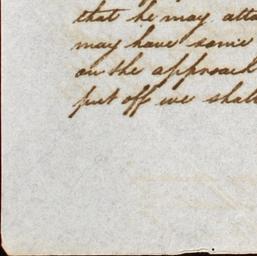 that he may atta
may have some
on the approach
put off we shall